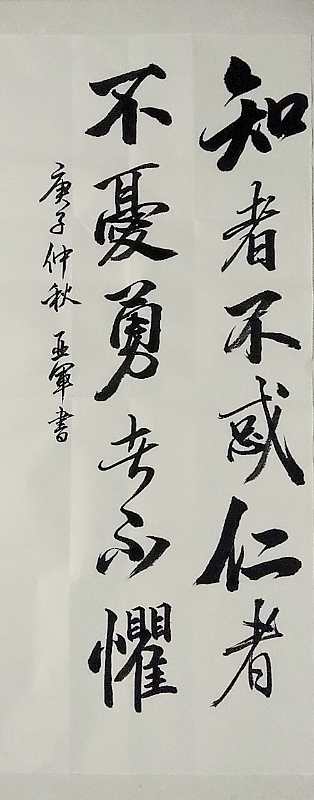 知者不惑仁者
不憂勇者不懼
庚子仲秋 亚軍書